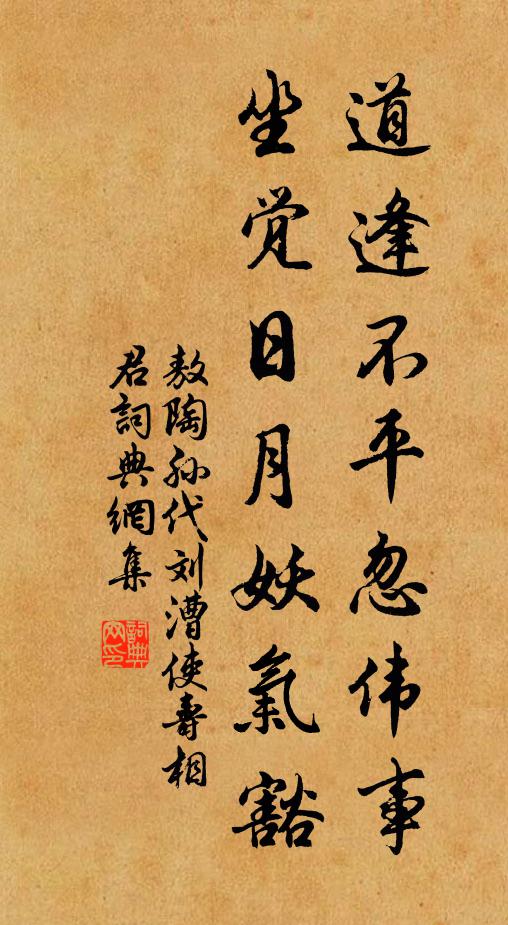 道逢不平忽伟事
坐觉日月妖氣豁
敖陶孙代刘漕使壽相
君詞典網集
詞典
网印